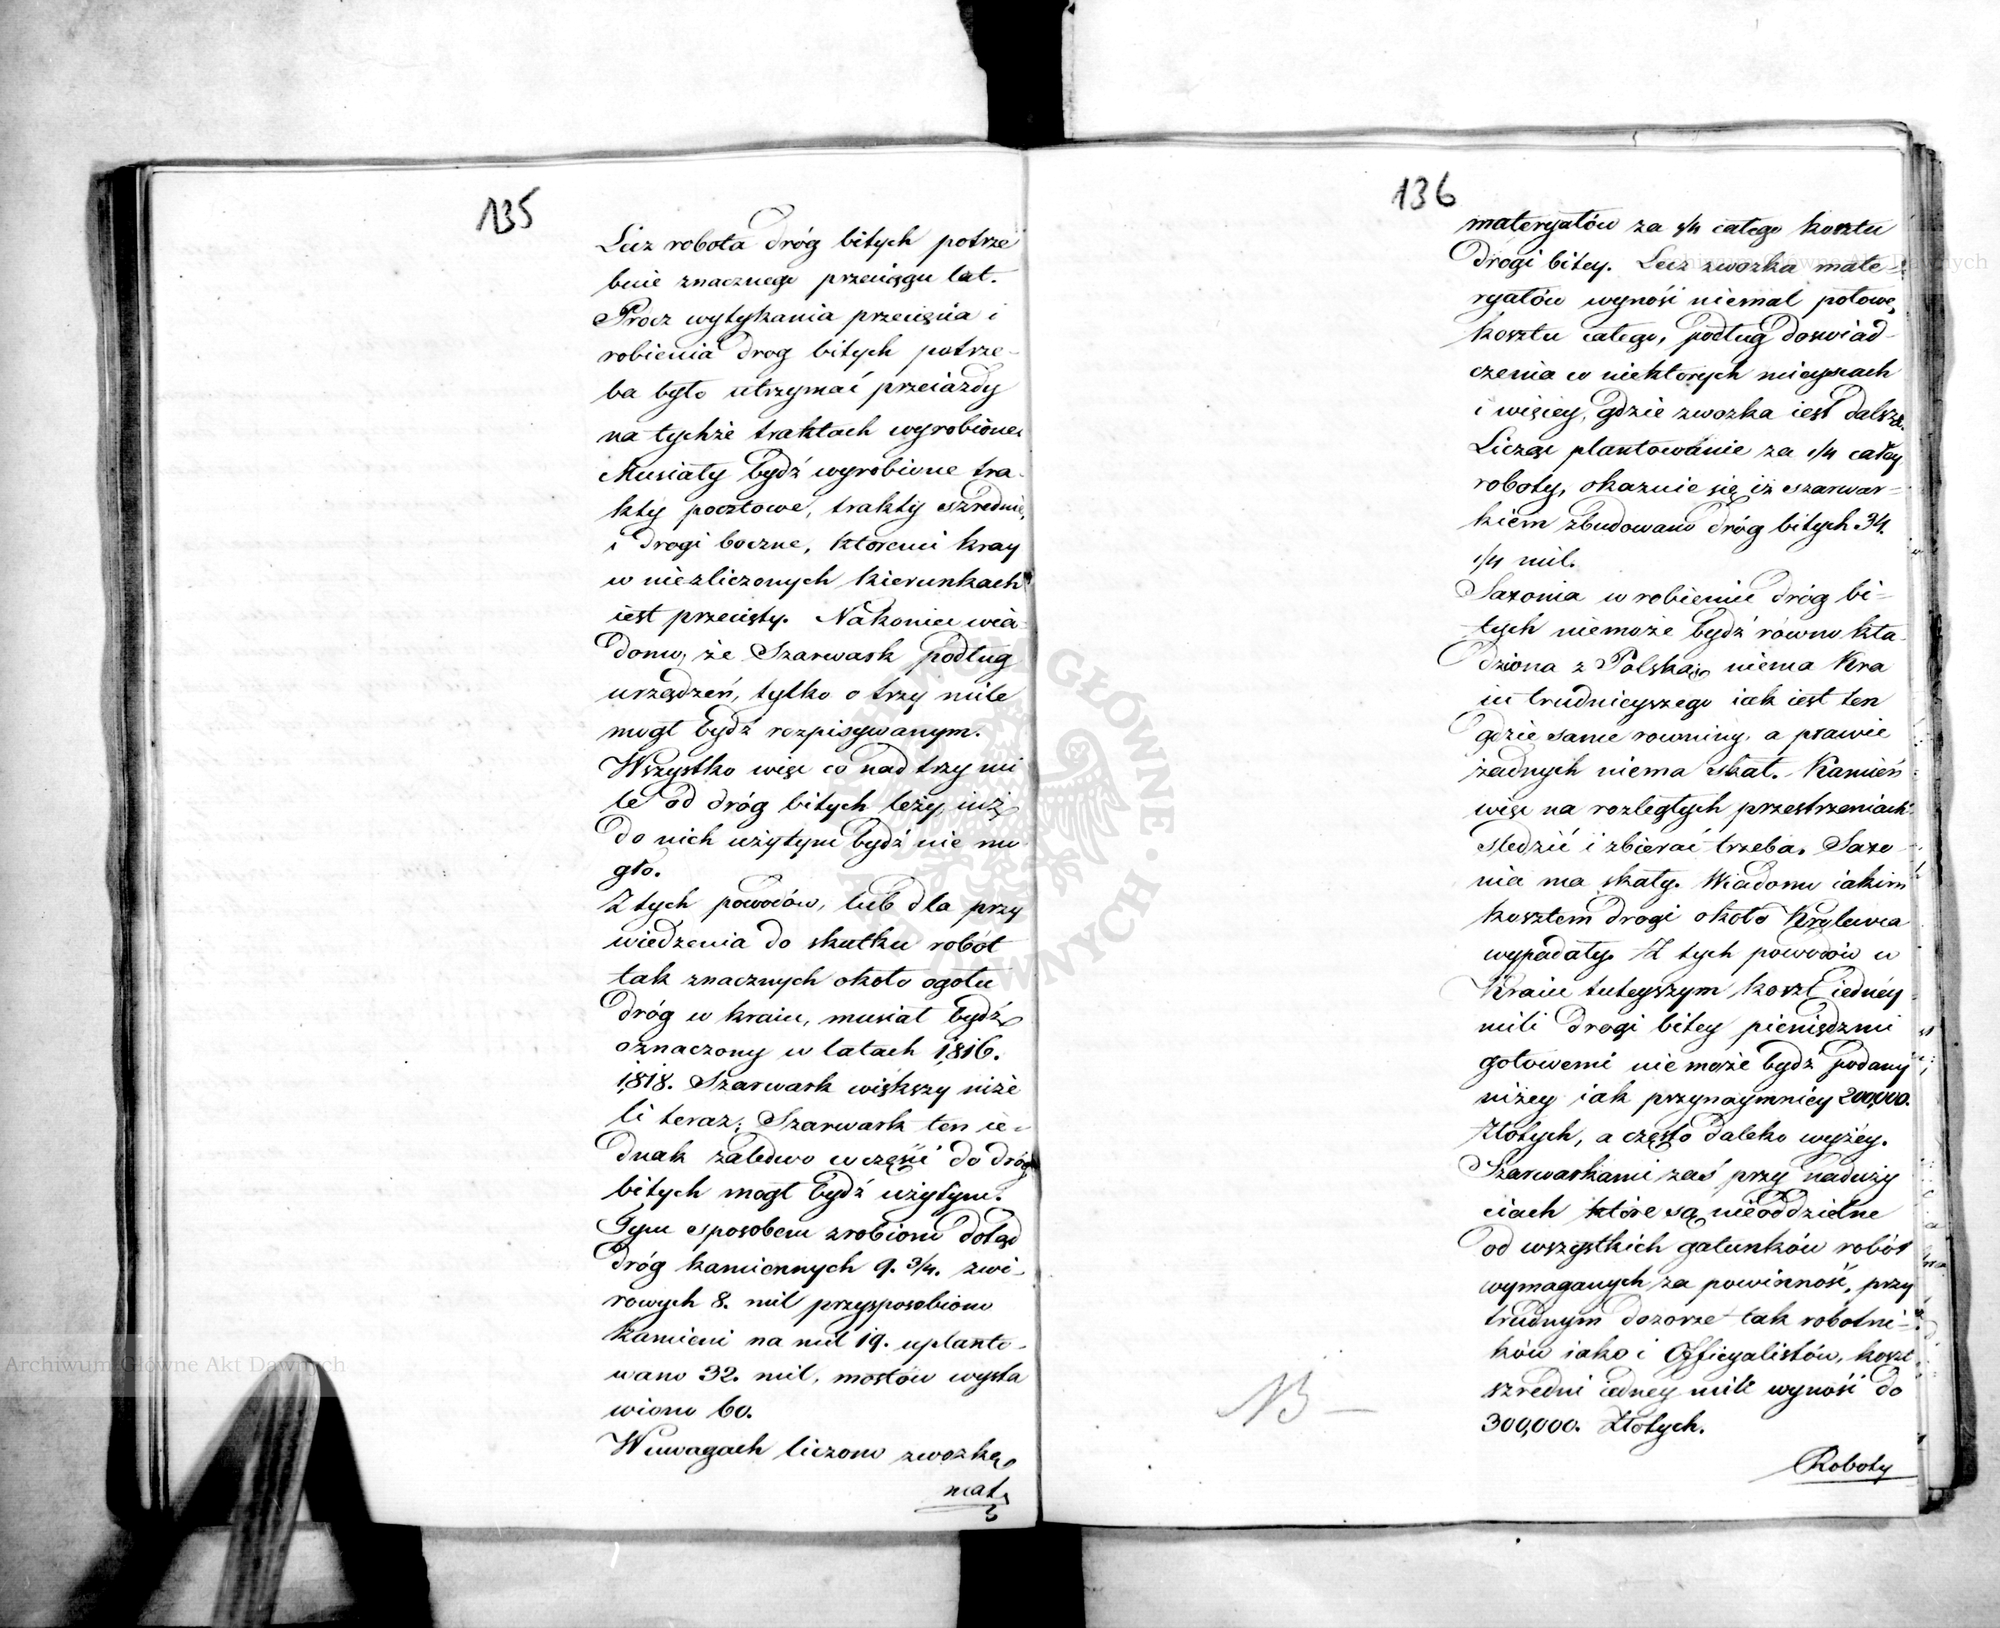 135
Lecz robota dróg bitych potrze
buie znacznego przeciągu lat.
Procz wytykania przecięcia i
robienia drog bitych potrze-
ba było utrzymać przeiazdy
na tychże traktach wyrobione.
Musiały bydź wyrobione tra-
kty pocztowe, trakty szrednie,
i drogi boczne, ktoremi kray
w niezliczonych kierunkach
iest przecięty. Nakoniec wia-
domo, że Szarwark podług
urządzeń, tylko o trzy mile
mogł bydź rozpisywanym.
Wszystko więc co nad trzy mi
le od dróg bitych leży, iuż
do nich użytym bydź nie mo
gło.
Z tych powodów, lub dla przy
wiedzenia do skutku robót
tak znacznych około ogółu
dróg w kraiu, musiał bydź
oznaczony w latach 1816.
1818. Szarwark większy niże
li teraz; Szarwark ten ie-
dnak zaledwo w części do dróg
bitych mogł bydź użytym.
Tym sposobem zrobiono dotąd
dróg kamiennych 9. 3/4. zwi-
rowych 8. mil przysposobiono
kamieni na mil 19. uplanto-
wano 32. mil, mostów wysta
wiono 60.
W uwagach liczono zwozkę
mat
136
materyałów za 1/4 całego kosztu
drogi bitey. Lecz zwozka mate-
ryałów wynosi niemal połowę
kosztu całego, podług doswiad-
czenia w niektorych mieyscach
i więcey, gdzie zwozka iest dalsza.
Licząc plantowanie za 1/4 całey
roboty, okazuie się iż szarwar-
kiem zbudowano dróg bitych 34.
1/4 mil.
Saxonia w robieniu dróg bi-
tych niemoże bydź równo kła-
dziona z Polską, niema Kra
iu trudnieyszego iak iest ten
gdzie same rowniny, a prawie
żadnych niema skał. Kamień
więc na rozległych przestrzeniach
sledzić i zbierać trzeba. Saxo-
nia ma skały. Wiadomo iakim
kosztem drogi około Krolewca
wypadały. Z tych powodów w
Kraiu tuteyszym koszt iedney
mili drogi bitey pieniędzmi
gotowemi nie może bydź podany
niżey iak przynaymniey 200,000.
Złotych, a często daleko wyżey.
Szarwarkami zaś przy naduży
ciach które są nieoddzielne
od wszystkich gatunków robót
wymaganych za powinność, przy
trudnym dozorze tak robotni-
ków iako i Officyalistów, koszt
szredni iedney mili wynosi do
300,000. Złotych.
NB —
Roboty
Archiwum Główne Akt Dawnych
Archiwum Główne Akt Dawnych